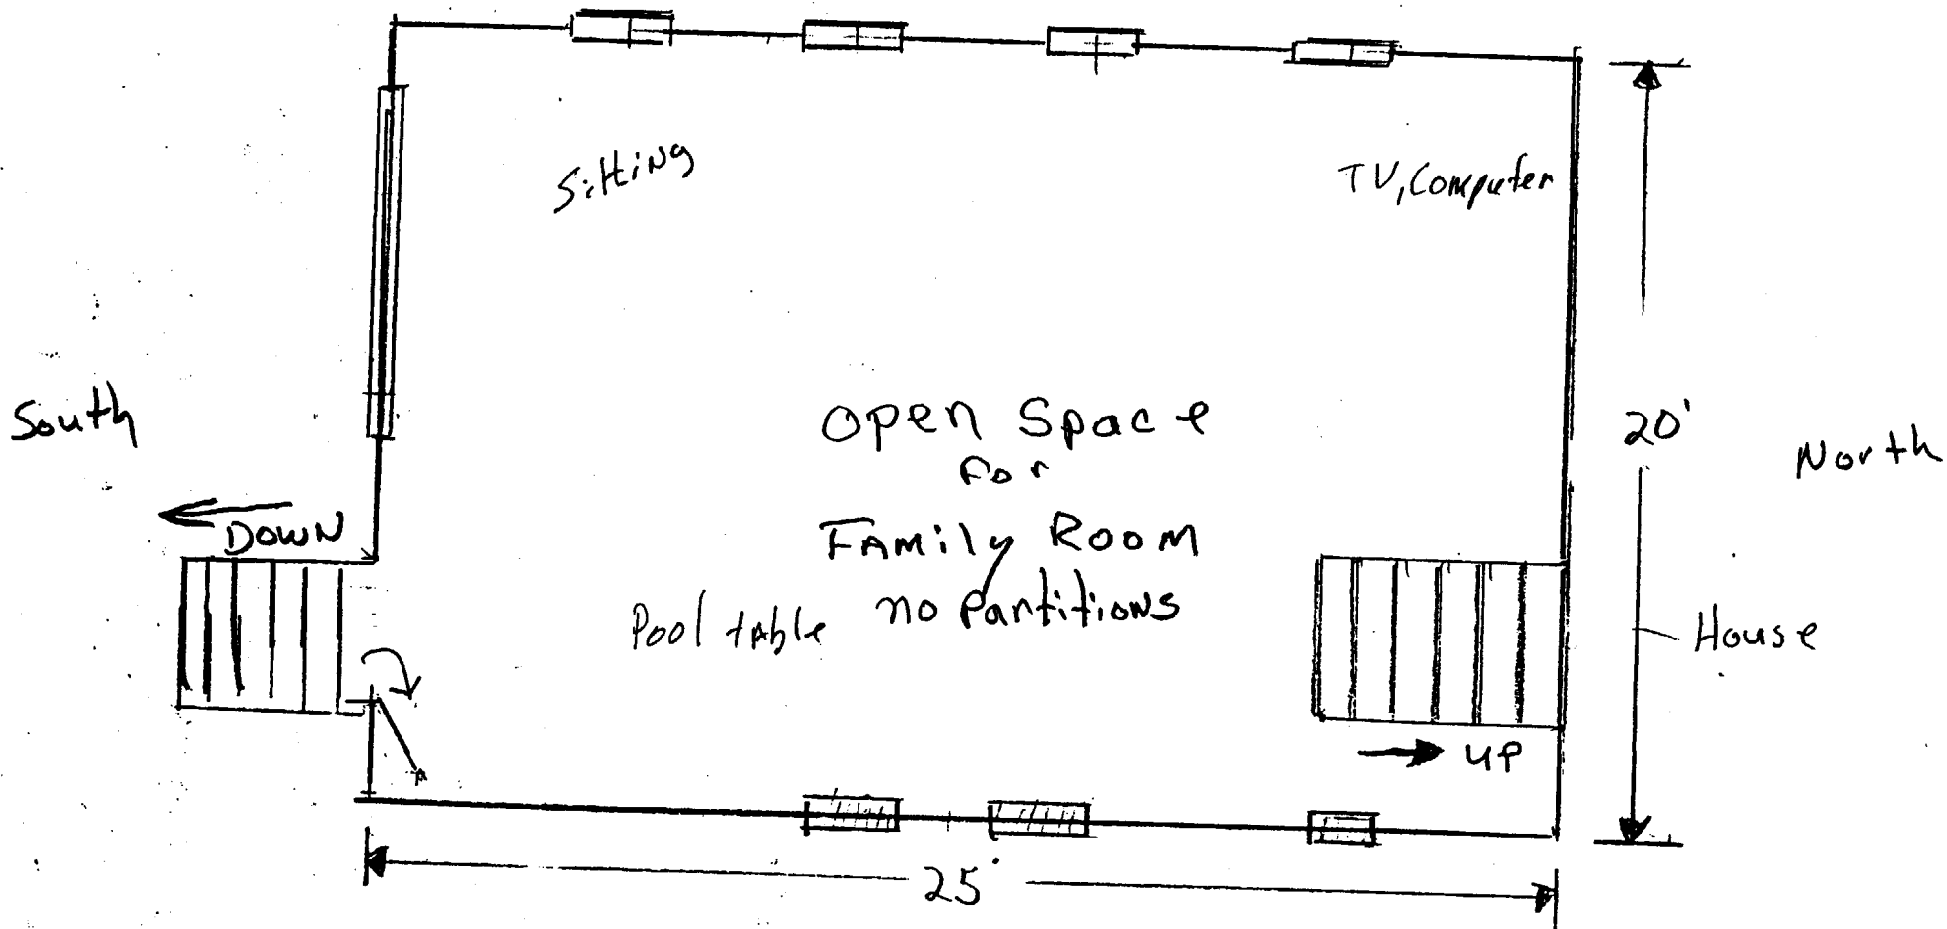 Sitting
TV, Computer
South
Open Space
For
Family Room
no Partitions
20'
North
DOWN
Pool table
House
UP
25'